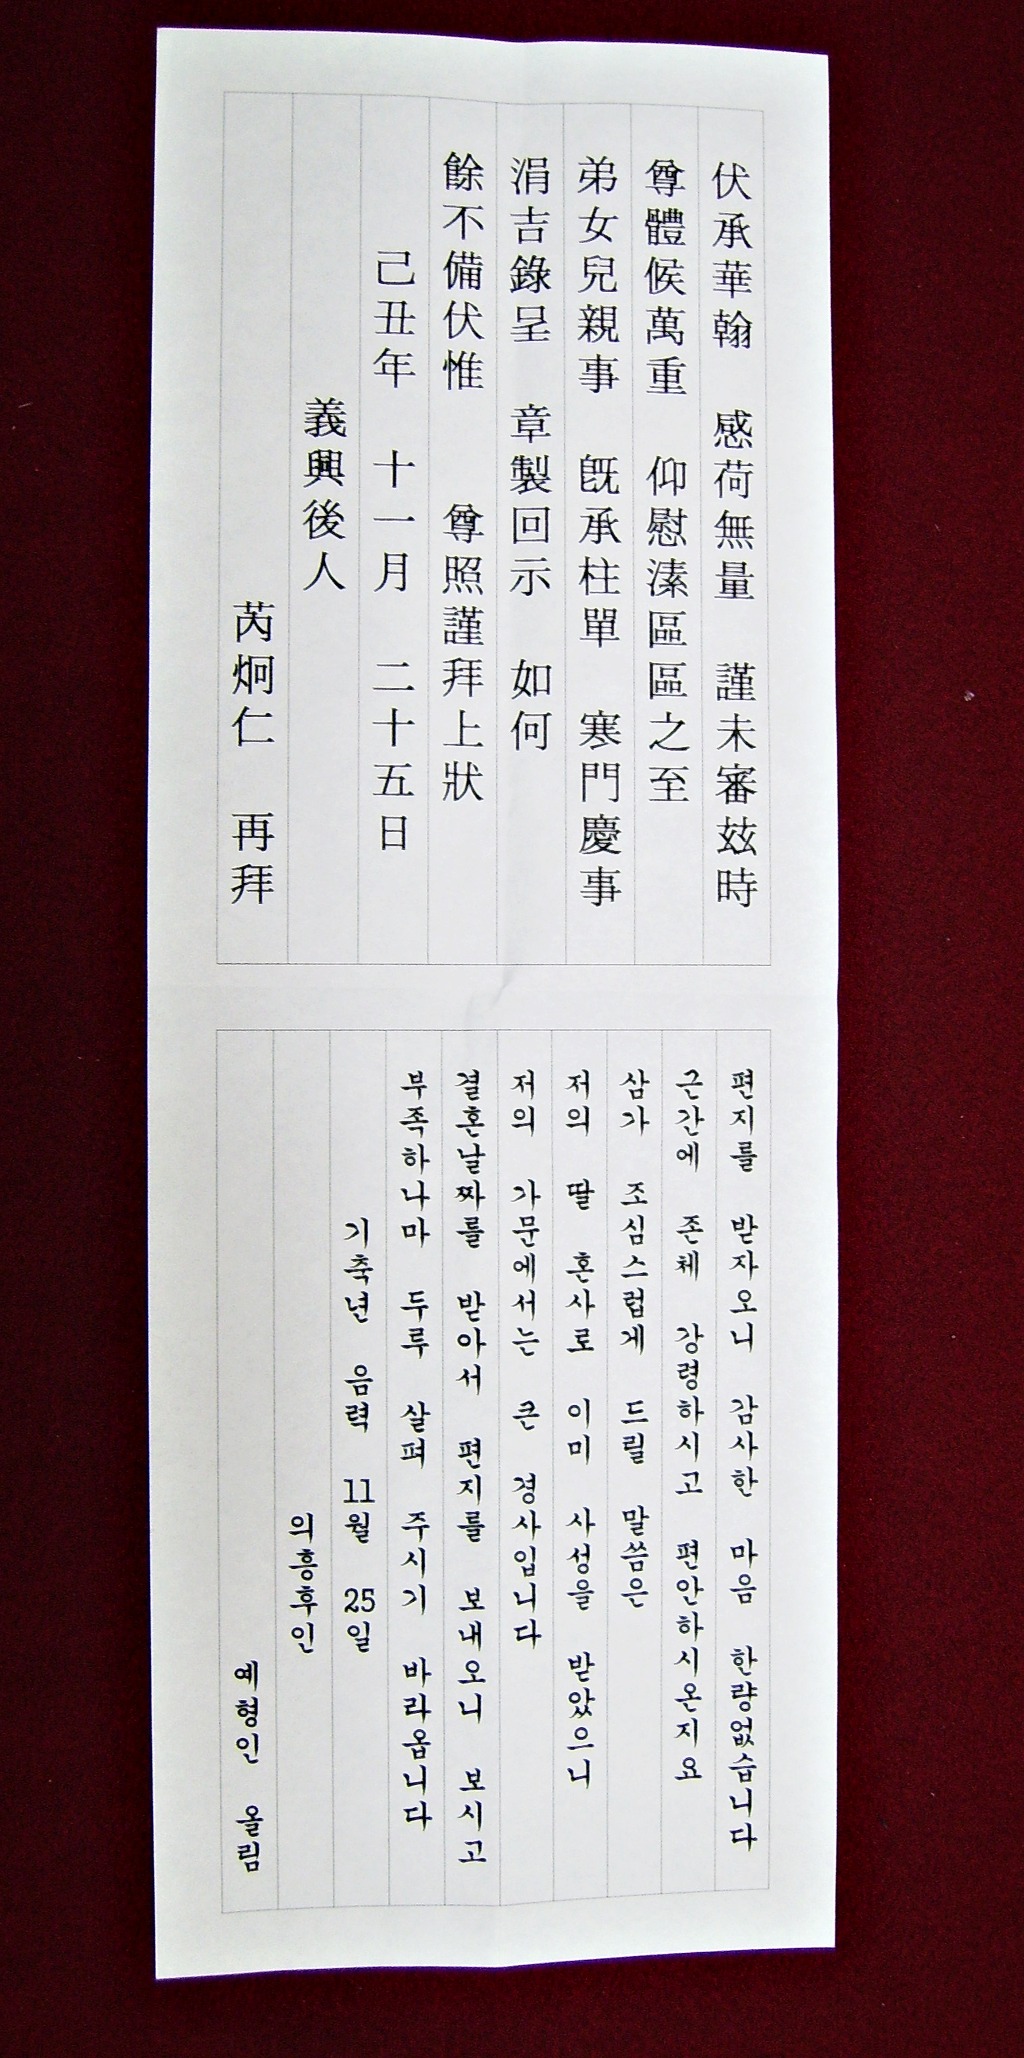 伏承華翰 感荷無量 謹未審玆時
尊體候萬重 仰慰溸區區之至
弟女兒親事 旣承柱單 寒門慶事
涓吉錄呈 章製回示 如何
餘不備伏惟 尊照謹拜上狀
己丑年 十一月 二十五日
義興後人
芮炯仁 再拜
편지를 받자오니 감사한 마음 한량없습니다
근간에 존체 강령하시고 편안하시온지요
삼가 조심스럽게 드릴 말씀은
저의 딸 혼사로 이미 사성을 받았으니
저의 가문에서는 큰 경사입니다
결혼날짜를 받아서 편지를 보내오니 보시고
부족하나마 두루 살펴 주시기 바라옵니다
기축년 음력 11월 25일
의흥후인
예형인 올림